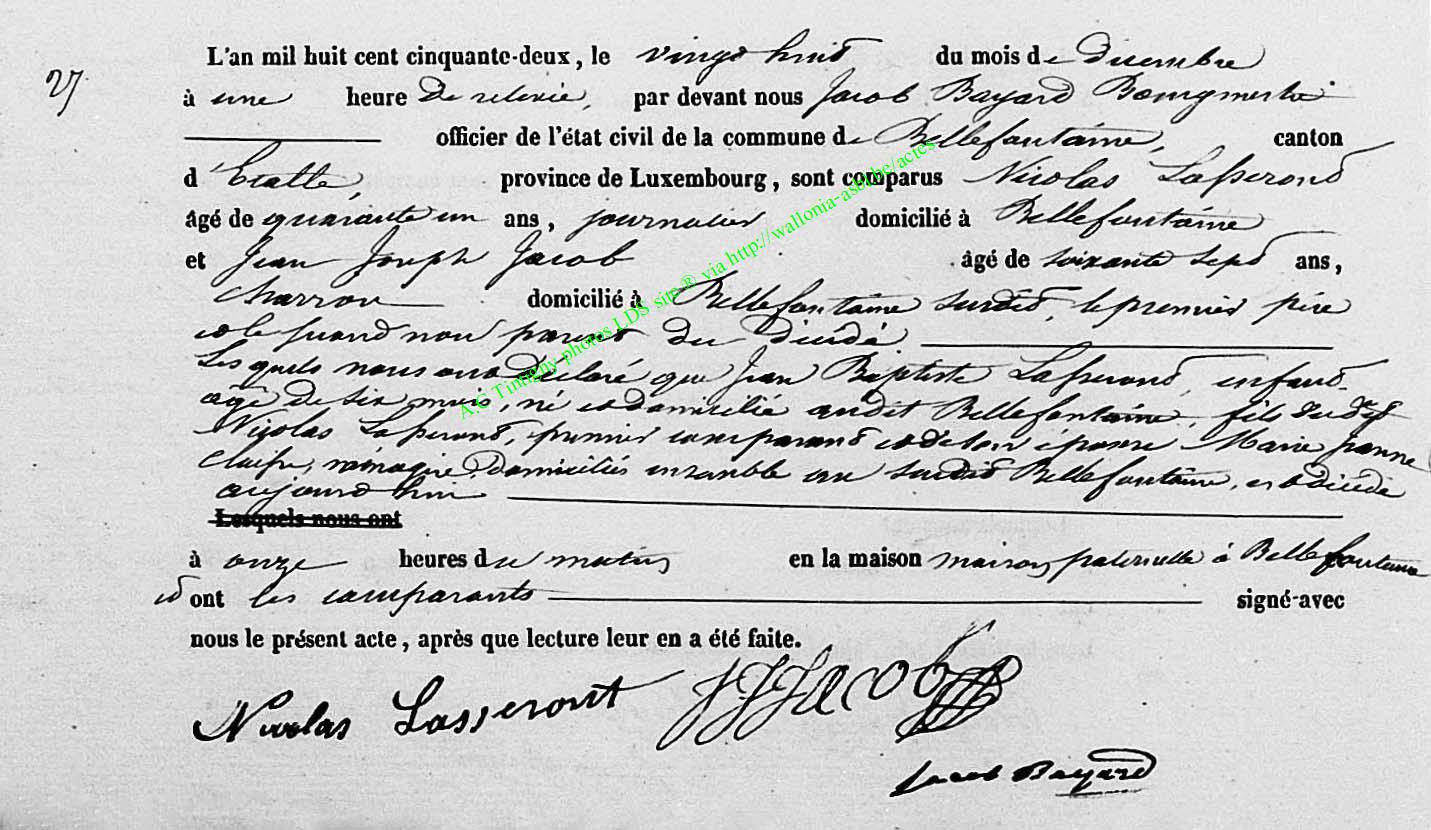 27
L'an mil huit cent cinquante-deux, le vingt huit du mois de décembre
à une heure de relevée, par devant nous Jacob Bayard Bourgmestre
officier de l'état civil de la commune de Bellefontaine, canton
d'Etalle province de Luxembourg, sont comparus Nicolas Lasseront
âgé de quarante un ans, journalier domicilié à Bellefontaine
et Jean Joseph Jacob âgé de soixante sept ans,
charron domicilié à Bellefontaine susdit, le premier père
et le second non parent du décédé
Lesquels nous ont déclaré que Jean Baptiste Lasseront, enfant
âgé de six mois, né et domicilié audit Bellefontaine, fils dudit
Nicolas Lasseront, premier comparant et de son épouse Marie Jeanne
ménagère, domiciliés ensemble au susdit Bellefontaine, est décédé
aujourd'hui
Lesquels nous ont
à onze heures du matin en la maison maison paternelle à Bellefontaine
et ont les comparants signé avec
nous le présent acte, après que lecture leur en a été faite.
Nicolas Lasseront JJJacob
Jacob Bayard
A.G Tintigny photos LDS site® via http://wallonia-asbl.be/actes